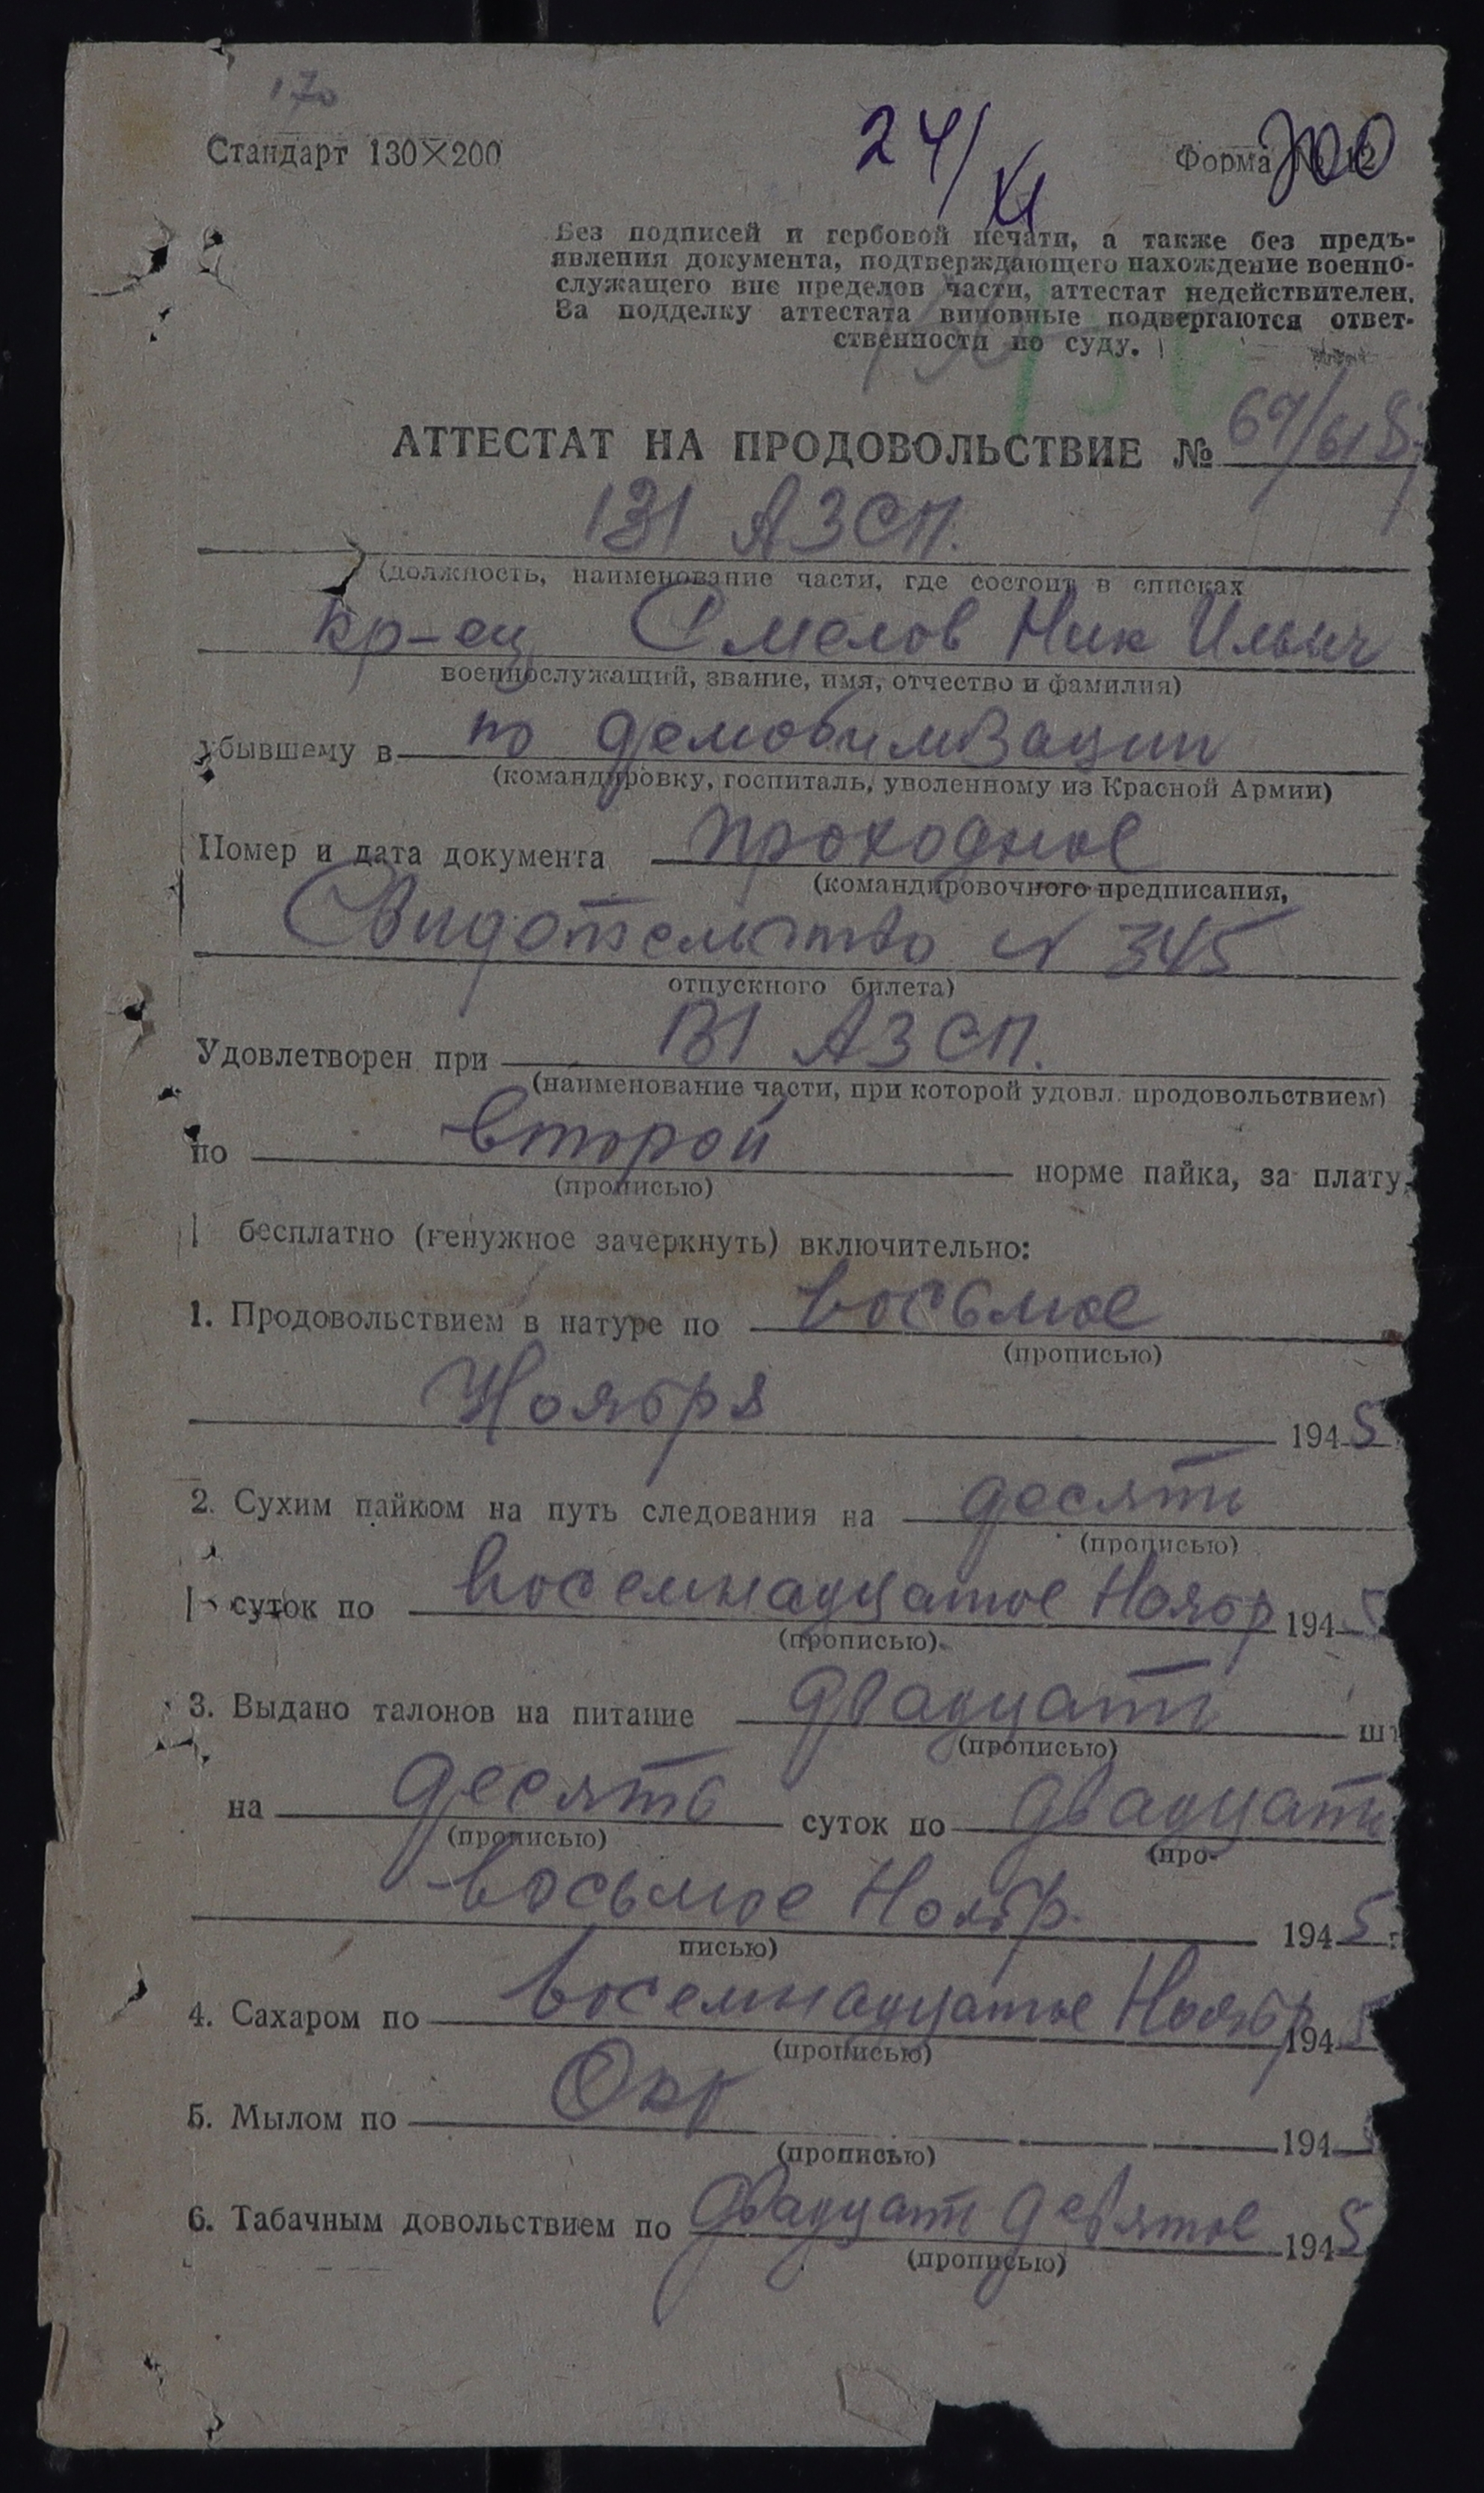 170
Стандарт 130×200
24/XI
Форма № 12
200
Без подписей и гербовой печати, а также без предъ-
явления документа, подтверждающего нахождение военно-
служащего вне пределов части, аттестат недействителен.
За подделку аттестата виновные подвергаются ответ-
ственности по суду.
АТТЕСТАТ НА ПРОДОВОЛЬСТВИЕ № 
131 АЗСП.
(должность, наименование части, где состоит в списках
кр-ец Смелов Ник Ильич
военнослужащий, звание, имя, отчество и фамилия)
убывшему в по демобилизации
(командировку, госпиталь, уволенному из Красной Армии)
Номер и дата документа проходное
(командировочного предписания,
Свидетельство N 345
отпускного билета)
Удовлетворен при 131 АЗСП.
(наименование части, при которой удовл. продовольствием)
по второй норме пайка, за плату,
(прописью)
бесплатно (ненужное зачеркнуть) включительно:
1. Продовольствием в натуре по восьмое
(прописью)
Ноября 1945
2. Сухим пайком на путь следования на десять
(прописью)
суток по восемнадцатое Ноябр 1945
(прописью)
3. Выдано талонов на питание двадцать шт
(прописью)
на десять суток по двадцать
(прописью) (про-
восьмое Ноябр. 1945
писью)
4. Сахаром по восемнадцатое Ноябр 1945
(прописью)
5. Мылом по Окт 194
(прописью)
6. Табачным довольствием по двадцать девятое 1945
(прописью)